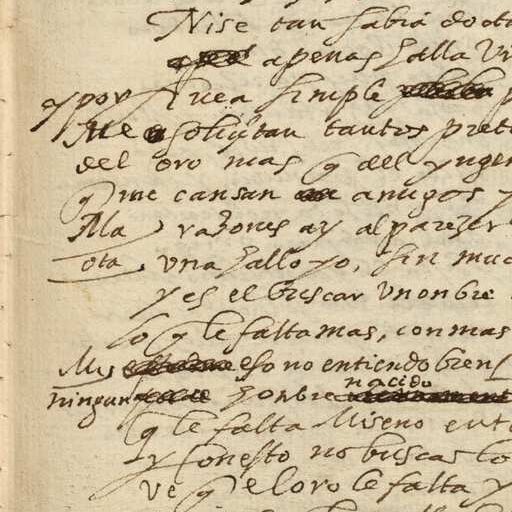 Nise tan sabia docta
apenas halla vn
y por finea simple
me solicitan tantos prete
del oro mas q del yngen
q me cansan amigos y
Ma razones ay al parezer
ota vna hallo yo, sin muc
y es el buscar vn onbre
lo q le falta mas, con mas
Mis eso no entiendo bien
ningun honbre nacido
q le falta Miseno ent
y son esto no buscas lo
ve q el oro le falta y